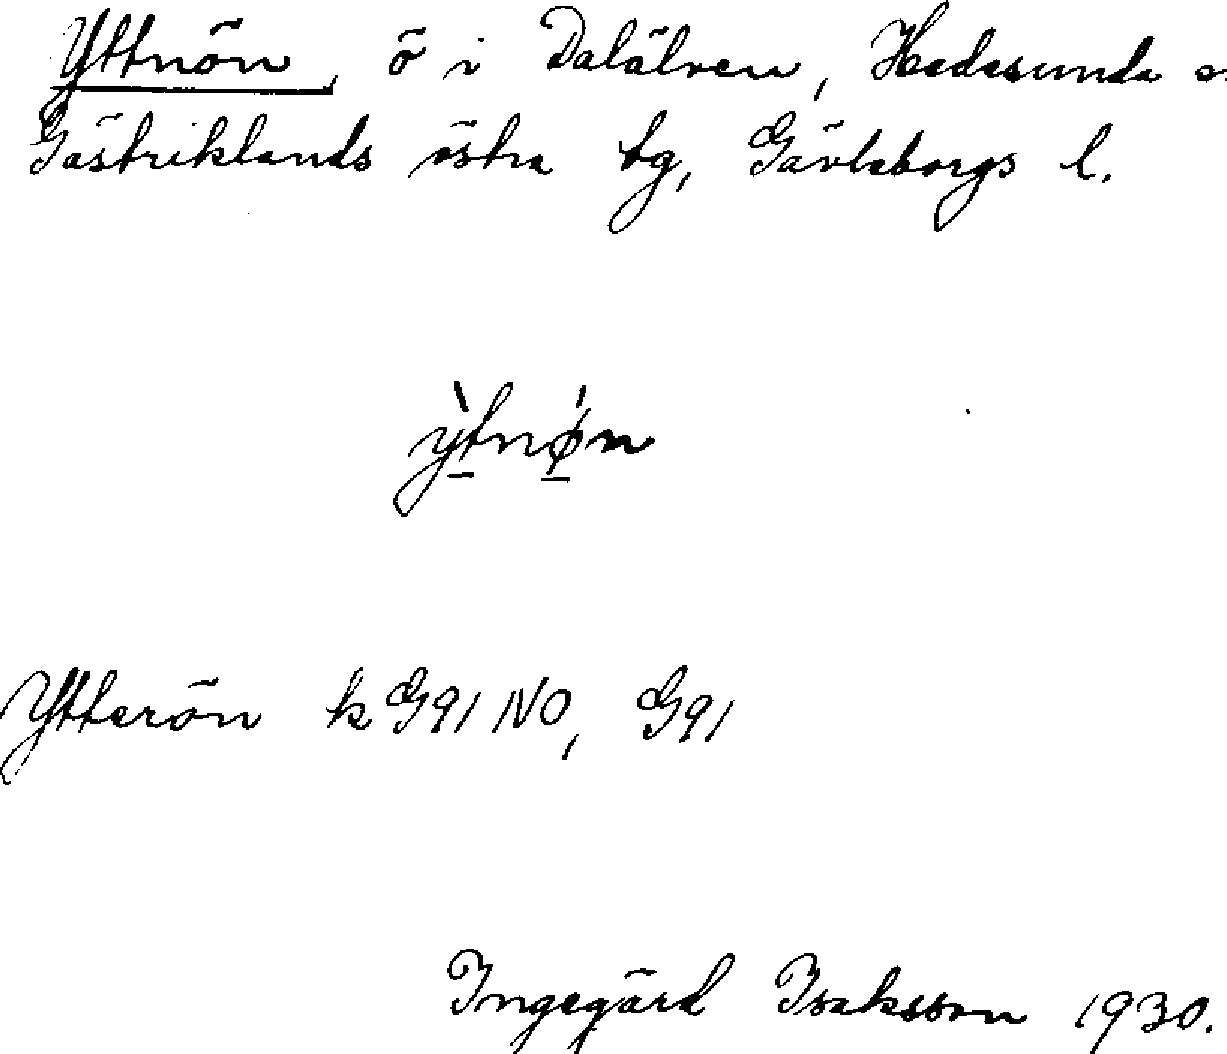 Yttnön, ö i Dalälven, Hedesunda
Gästriklands östra tg, Gävleborgs l.
ỳtnǿn
Ytterön k G91 NO, G91
Ingegärd Isaksson 1930.